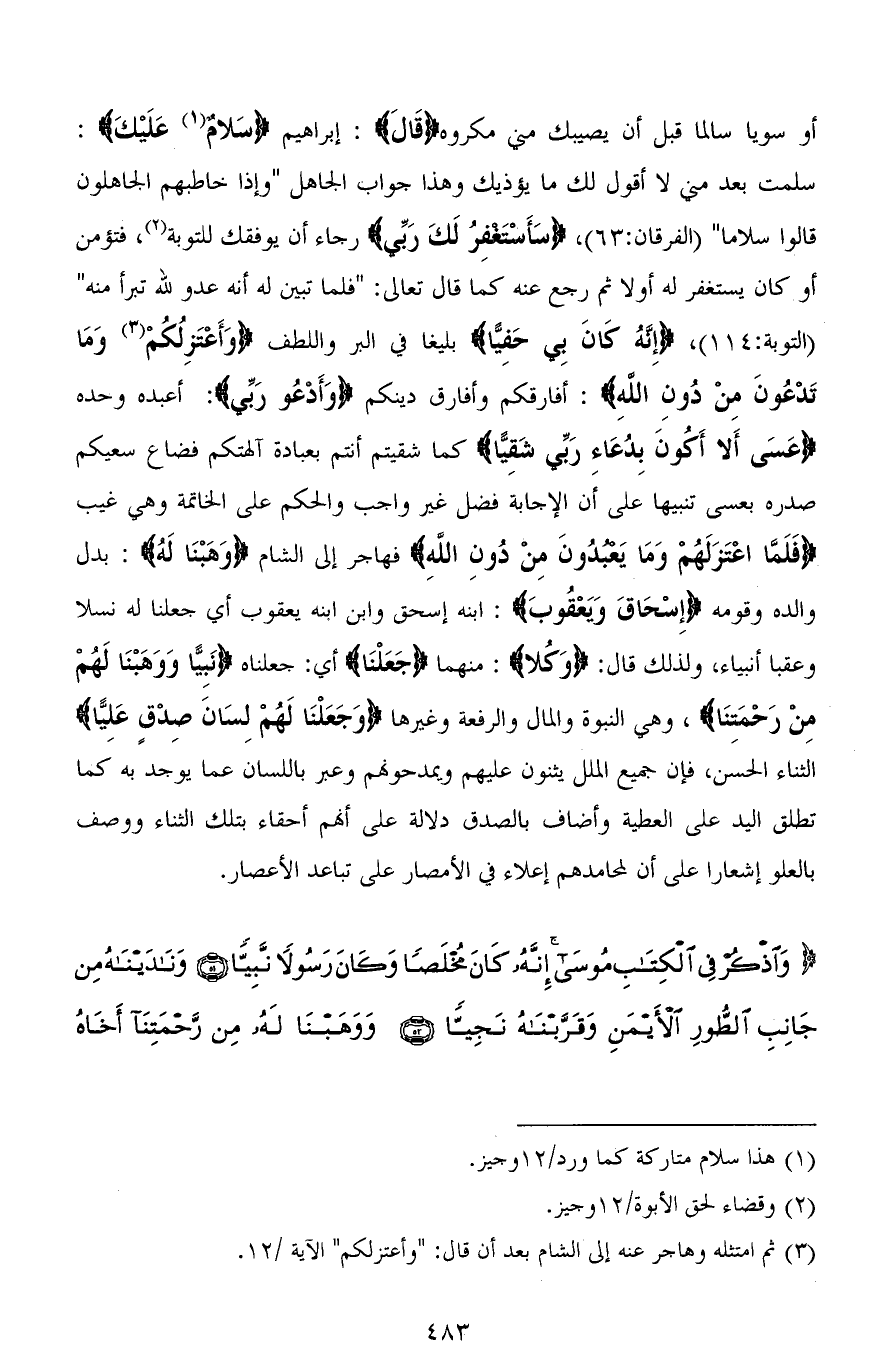 أو سويا سالما قبل أن يصيبك مني مكروه﴿قَالَ﴾ : إبراهيم ﴿سَلامٌ(١) عَلَيْكَ﴾ :
سلمت بعد مني لا أقول لك ما يؤذيك وهذا جواب الجاهل "وإذا خاطبهم الجاهلون
قالوا سلاما" (الفرقان:٦٣)، ﴿سَأَسْتَغْفِرُ لَكَ رَبِّي﴾ رجاء أن يوفقك للتوبة(٢)، فتؤمن
أو كان يستغفر له أولا ثم رجع عنه كما قال تعالى: "فلما تبين له أنه عدو لله تبرأ منه"
(التوبة:١١٤)، ﴿إِنَّهُ كَانَ بِي حَفِيًّا﴾ بليغا في البر واللطف ﴿وَأَعْتَزِلُكُمْ(٣) وَمَا
تَدْعُونَ مِنْ دُونِ اللَّهِ﴾ : أفارقكم وأفارق دينكم ﴿وَأَدْعُو رَبِّي﴾: أعبده وحده
﴿عَسَى أَلا أَكُونَ بِدُعَاءِ رَبِّي شَقِيًّا﴾ كما شقيتم أنتم بعبادة آلهتكم فضاع سعيكم
صدره بعسى تنبيها على أن الإجابة فضل غير واجب والحكم على الخاتمة وهي غيب
﴿فَلَمَّا اعْتَزَلَهُمْ وَمَا يَعْبُدُونَ مِنْ دُونِ اللَّهِ﴾ فهاجر إلى الشام ﴿وَهَبْنَا لَهُ﴾ : بدل
والده وقومه ﴿إِسْحَاقَ وَيَعْقُوبَ﴾ : ابنه إسحق وابن ابنه يعقوب أي جعلنا له نسلا
وعقبا أنبياء، ولذلك قال: ﴿وَكُلا﴾ : منهما ﴿جَعَلْنَا﴾ أي: جعلناه ﴿نَبِيًّا وَوَهَبْنَا لَهُمْ
مِنْ رَحْمَتِنَا﴾ ، وهي النبوة والمال والرفعة وغيرها ﴿وَجَعَلْنَا لَهُمْ لِسَانَ صِدْقٍ عَلِيًّا﴾
الثناء الحسن، فإن جميع الملل يثنون عليهم ويمدحونهم وعبر باللسان عما يوجد به كما
تطلق اليد على العطية وأضاف بالصدق دلالة على أنهم أحقاء بتلك الثناء ووصف
بالعلو إشعارا على أن لمحامدهم إعلاء في الأمصار على تباعد الأعصار.
﴿ وَٱذْكُرْ فِى ٱلْكِتَـٰبِ مُوسَىٰٓ ۚ إِنَّهُۥ كَانَ مُخْلَصًا وَكَانَ رَسُولًا نَّبِيًّا ۝٥١ وَنَـٰدَيْنَـٰهُ مِن
جَانِبِ ٱلطُّورِ ٱلْأَيْمَنِ وَقَرَّبْنَـٰهُ نَجِيًّا ۝٥٢ وَوَهَبْنَا لَهُۥ مِن رَّحْمَتِنَآ أَخَاهُ
(١) هذا سلام متاركة كما ورد/١٢وجيز.
(٢) وقضاء لحق الأبوة/١٢وجيز.
(٣) ثم امتثله وهاجر عنه إلى الشام بعد أن قال: "وأعتزلكم" الآية /١٢.
٤٨٣